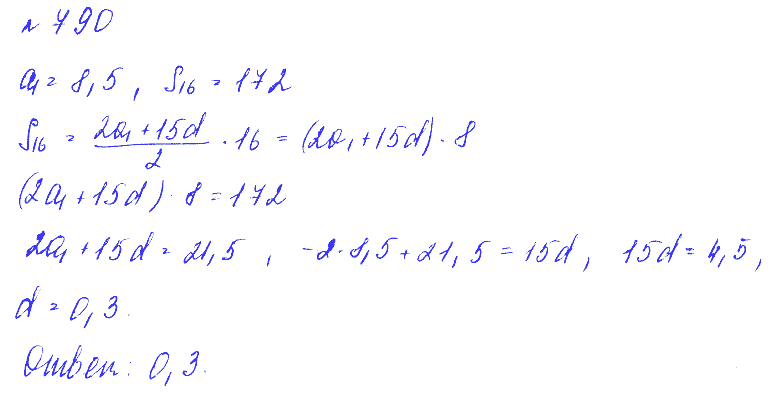 № 790
a₁ = 8,5 , S₁₆ = 172
S₁₆ = (2a₁ + 15d)/2 · 16 = (2a₁ + 15d) · 8
(2a₁ + 15d) · 8 = 172
2a₁ + 15d = 21,5 , -2·8,5 + 21,5 = 15d , 15d = 4,5 ,
d = 0,3.
Ответ: 0,3.